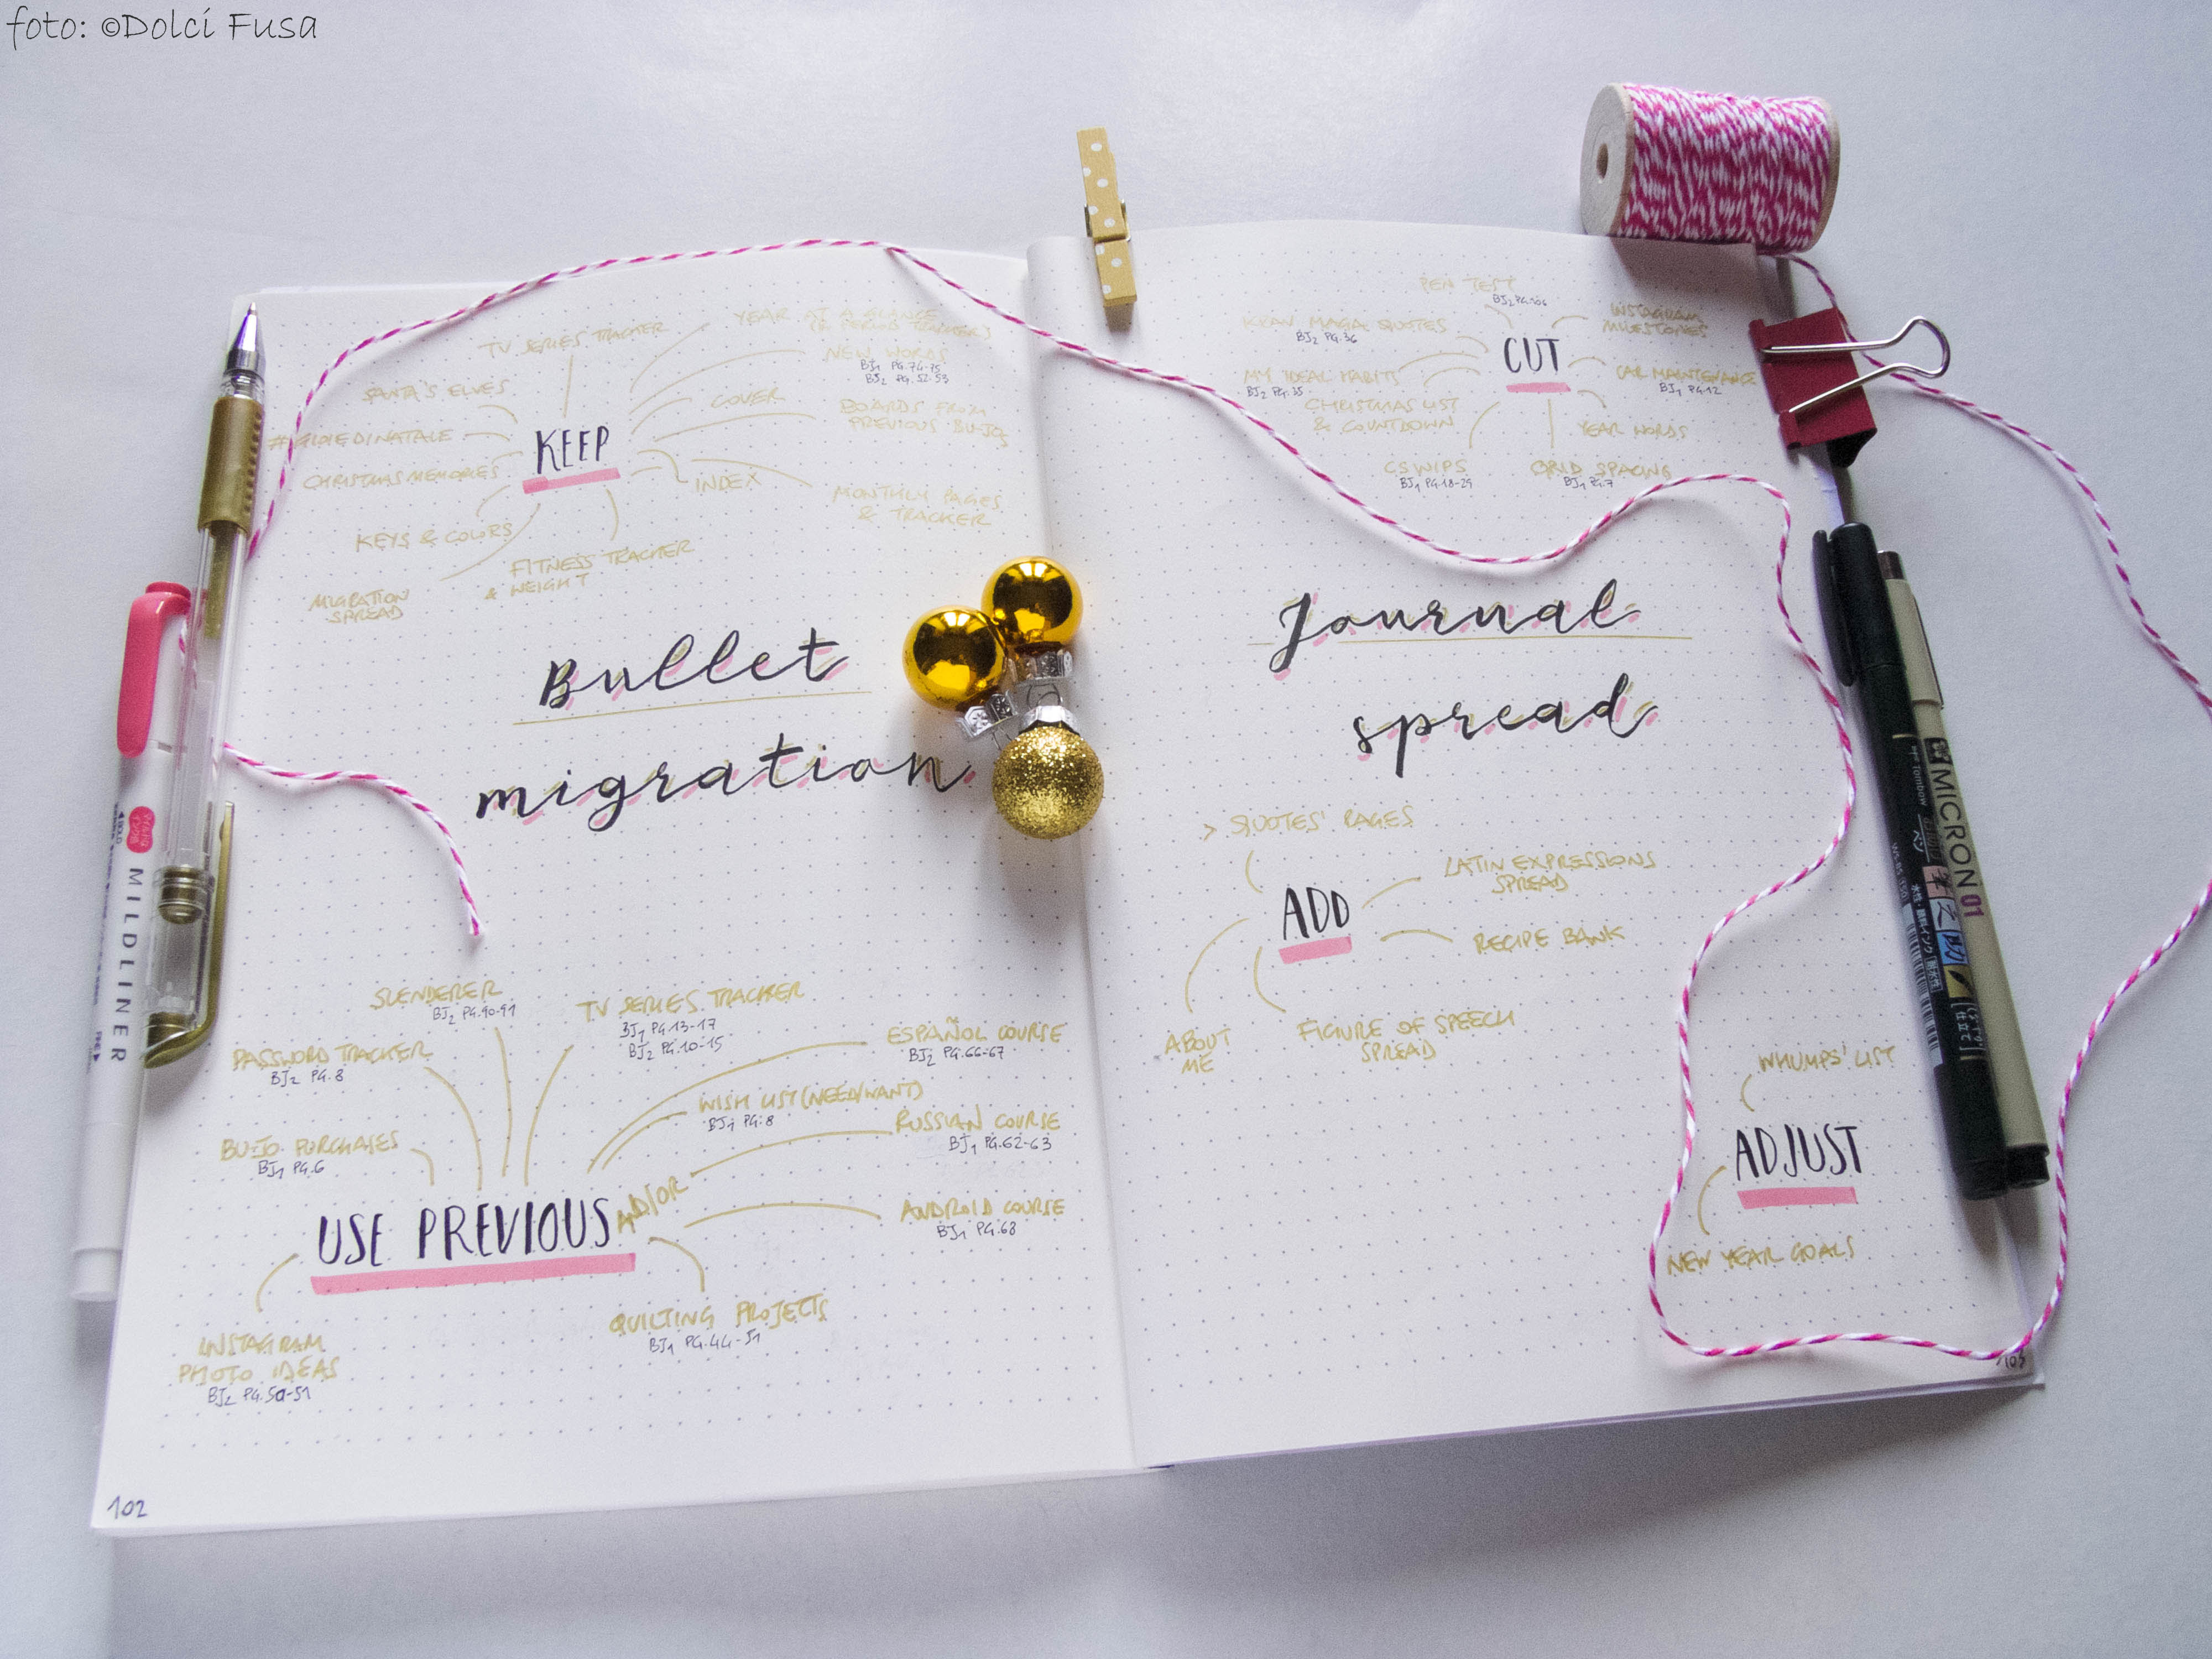 foto: ©Dolci Fusa
TV SERIES TRACKER
YEAR AT A GLANCE
(& PERIOD TRACKERS)
NEW WORDS
BJ1 PG.74-75
BJ2 PG.52-53
SANTA'S ELVES
COVER
BOARDS FROM
PREVIOUS BUJO
KEEP
CHRISTMAS MEMORIES
INDEX
MONTHLY PAGES
& TRACKER
KEYS & COLORS
FITNESS TRACKER
& WEIGHT
MIGRATION
SPREAD
Bullet
migration
SLENDERER
BJ2 PG.90-91
TV SERIES TRACKER
BJ1 PG.13-17
BJ2 PG.10-15
ESPAÑOL COURSE
BJ2 PG.66-67
PASSWORD TRACKER
BJ2 PG.8
WISH LIST (NEED/WANT)
BJ1 PG.8
RUSSIAN COURSE
BJ1 PG.62-63
BUJO PURCHASES
BJ1 PG.6
USE PREVIOUS AND/OR
ANDROID COURSE
BJ1 PG.68
QUILTING PROJECTS
BJ1 PG.44-51
INSTAGRAM
PHOTO IDEAS
BJ2 PG.50-51
102
PEN TEST
BJ2 PG.106
KRAV MAGA QUOTES
BJ2 PG.36
INSTAGRAM
MILESTONES
CUT
MY IDEAL HABITS
BJ2 PG.35
CAR MAINTENANCE
BJ1 PG.12
CHRISTMAS LIST
& COUNTDOWN
YEAR WORDS
CS WIPS
BJ1 PG.18-29
GRID SPACING
BJ1 PG.7
Journal
spread
> QUOTES' PAGES
LATIN EXPRESSIONS
SPREAD
ADD
RECIPE BANK
ABOUT
ME
FIGURE OF SPEECH
SPREAD
WHUMPS' LIST
ADJUST
NEW YEAR GOALS
103
MILDLINER
Tombow
MICRON 01